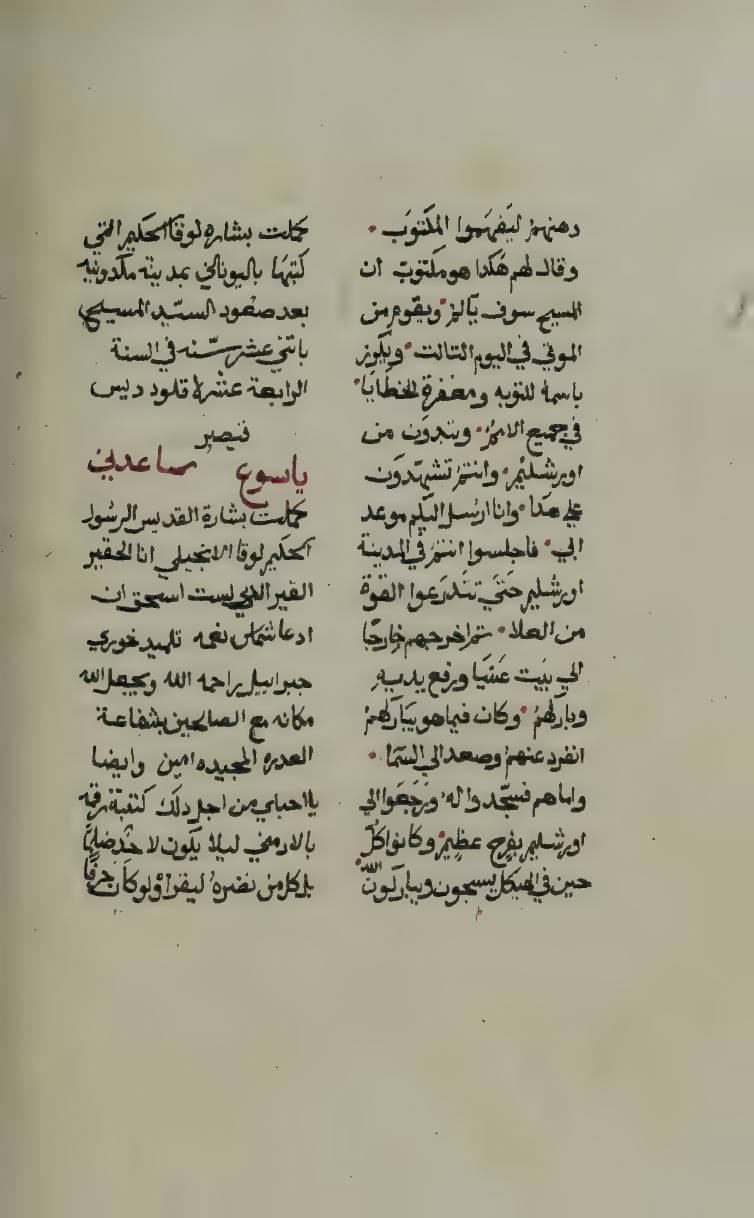 دهنهم ليفهموا المكتوب
وقال لهم هكدا هو مكتوب ان
المسيح سوف يالم ويقوم من
الموتي في اليوم التالت ويكرز
باسمه للتوبه ومغفرة الخطايا
في جميع الامم ويتبدون من
اورشليم وانتم تشهدون
علي هدا وانا ارسل اليكم موعد
ابي فاجلسوا انتم في المدينة
اورشليم حتي تتدرعوا القوة
من العلا تم اخرجهم خارجا
الي بيت عنيا ورفع يديه
وباركهم وكان فيما هو يباركهم
انفرد عنهم وصعد الي السما
واما هم فسجدوا له ورجعوا الي
اورشليم بفرح عظيم وكانوا كل
حين في الهيكل يسبحون ويباركون الله
كملت بشاره لوقا الحكيم التي
كتبها باليوناني بمدينه مكدونيه
بعد صعود السيد المسيح
باتني عشر سنه في السنة
الرابعة عشره لاقلوديس
قيصر
ياسوع ساعدني
كملت بشارة القديس الرسول
الحكيم لوقا الانجيلي انا الحقير
الفير الدي لست اسحق ان
ادعا شماس نعمه تلميد خوري
جبراييل راحمه الله ويجعل الله
مكانه مع الصالحين بشفاعة
العدره المجيده امين وايضا
يااحبابي من اجل دلك كتبة
بالارمني ليلا يكون لاحد
بل كل من نضره ليقرا ولو كان حرفا